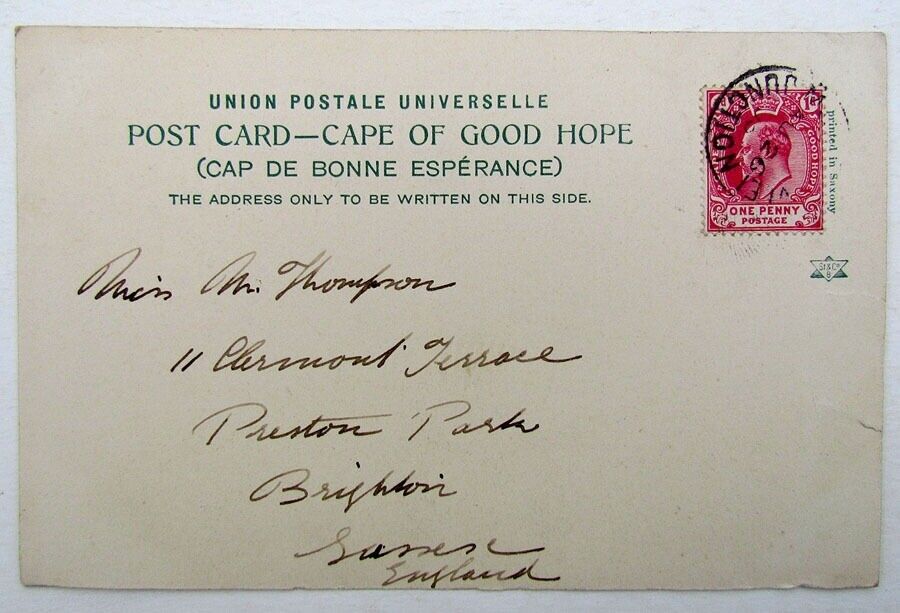 UNION POSTALE UNIVERSELLE
POST CARD—CAPE OF GOOD HOPE
(CAP DE BONNE ESPÉRANCE)
THE ADDRESS ONLY TO BE WRITTEN ON THIS SIDE.
JUNCTION
GOOD HOPE
1d
ONE PENNY
POSTAGE
printed in Saxony
St & Co
8
Miss M. Thompson
11 Clermont Terrace
Preston Park
Brighton
Sussex
England